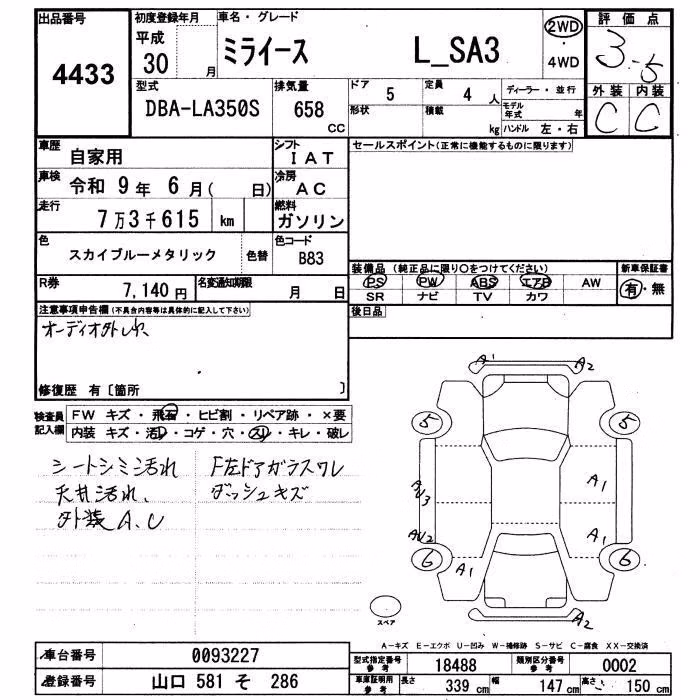 出品番号
4433
初度登録年月
平成
30 月
車名・グレード
ミライース L_SA3
2WD
・
4WD
評価点
3.5
外装 内装
C C
型式
DBA-LA350S
排気量
658
CC
ドア
5
定員
4 人
形状
積載
kg
ディーラー・並行
モデル年式 年
ハンドル 左・右
車歴
自家用
シフト
IAT
車検
令和 9年 6月( 日)
冷房
AC
走行
7万3千615 km
燃料
ガソリン
色
スカイブルーメタリック
色替
色コード
B83
R券
7,140円
名変通知期限
月 日
セールスポイント(正常に機能するものに限ります)
装備品 (純正品に限り○をつけてください)
新車保証書
PS PW ABS エアB AW
有・無
SR ナビ TV カワ
後日品
注意事項申告欄(不具合内容等は具体的に記入して下さい)
オーディオ外レ
修復歴 有〔箇所 〕
検査員記入欄
FW キズ・飛石・ヒビ割・リペア跡・×要
内装 キズ・汚レ・コゲ・穴・スリ・キレ・破レ
シートシミ汚れ
天井汚れ、
外装A.U
F左ドアガラスワレ
ダッシュキズ
A1
A2
5
5
AU3
A1
AU2
A1
6
A1
6
A2
スペア
A-キズ E-エクボ U-凹み W-補修跡 S-サビ C-腐食 XX-交換済
車台番号
0093227
登録番号
山口 581 そ 286
型式指定番号
参考
18488
類別区分番号
参考
0002
車庫証明用
参考
長さ
339 cm
幅
147 cm
高さ
150 cm